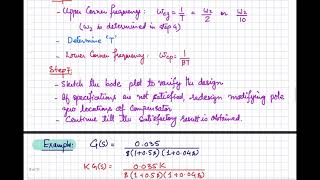 - Upper Corner frequency: ω_cz = 1/T = ω₂/2 or ω₂/10
(ω₂ is determined in step 4)
- Determine 'T'
- Lower Corner frequency: ω_cp = 1/βT
Step 7
- Sketch the bode plot to verify the design
- If specifications are not satisfied, redesign modifying pole
zero locations of Compensator
- Continue till the satisfactory result is obtained.
Example: G(s) = 0.035 / s(1+0.5s)(1+0.04s)
K G(s) = 0.035 K / s(1+0.5s)(1+0.04s)